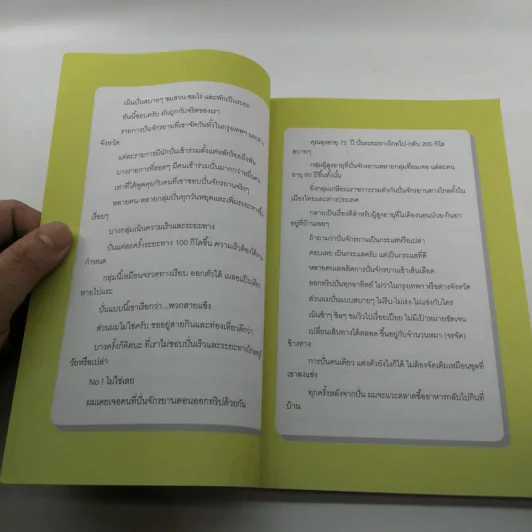 เน้นปั่นสบายๆ ชมสวน ชมไร่ และพักเป็นระยะ
อันนี้ชอบครับ มันถูกกับจริตของเรา
รายการปั่นจักรยานที่เขาจัดกันทั้งในกรุงเทพฯ และต่าง
จังหวัด
แต่ละรายการมีนักปั่นเข้าร่วมตั้งแต่หลักร้อยถึงพัน
บางรายการที่ฮอตๆ มีคนเข้าร่วมปั่นมากกว่าหมื่นคน
เท่าที่ได้พูดคุยกับคนที่เขาชอบปั่นจักรยานจริงๆ
หลายคน หลายกลุ่มปั่นทุกวันหยุดและเพิ่มระยะทางขึ้น
เรื่อยๆ
บางกลุ่มเน้นความเร็วและระยะทาง
ปั่นแต่ละครั้งระยะทาง 100 กิโลขึ้น ความเร็วต้องได้ตาม
กำหนด
กลุ่มนี้เหมือนจรวดทางเรียบ ออกตัวได้ เผลอแป๊บเดียว
หายไปแระ
ปั่นแบบนี้เขาเรียกว่า...พวกสายแข็ง
ส่วนผมไม่ใช่ครับ ขออยู่สายกินและท่องเที่ยวดีกว่า
บางครั้งก็คิดนะ ที่เราไม่ชอบปั่นเร็วและระยะทางไกลอยู่ที่
วัยหรือเปล่า
No ! ไม่ใช่เลย
ผมเคยเจอคนที่ปั่นจักรยานตอนออกทริปด้วยกัน
คุณลุงอายุ 72 ปี ปั่นระยะทางไกลไป-กลับ 200 กิโล
สบายๆ
กลุ่มผู้สูงอายุที่ปั่นจักรยานหลายกลุ่มที่ผมเจอ แต่ละคน
อายุ 60 ปีขึ้นทั้งนั้น
ยิ่งกลุ่มเกษียณราชการรวมตัวกันปั่นจักรยานทางไกลทั้งใน
เมืองไทยและต่างประเทศ
กลายเป็นเรื่องดีสำหรับผู้สูงอายุที่ไม่ต้องนอนป่วย กินยา
อยู่ที่บ้านเฉยๆ
ถ้าถามว่าปั่นจักรยานเป็นกระแสหรือเปล่า
ตอบเลย เป็นกระแสครับ แต่เป็นกระแสที่ดี
หลายคนเสพติดการปั่นจักรยานเข้าเส้นเลือด
ออกทริปปั่นทุกอาทิตย์ ไม่ว่าในกรุงเทพฯ หรือต่างจังหวัด
ส่วนผมปั่นแบบสบายๆ ไม่รีบ ไม่เร่ง ไม่แข่งกับใคร
เน้นช้าๆ ชิลๆ ชมวิวไปเรื่อยเปื่อย ไม่มีเป้าหมายชัดเจน
เปลี่ยนเส้นทางได้ตลอด ขึ้นอยู่กับจำนวนหมา (จรจัด)
ข้างทาง
การปั่นคนเดียว แต่งตัวยังไงก็ได้ ไม่ต้องจัดเต็มเหมือนชุดที่
เขาลงแข่ง
ทุกครั้งหลังจากปั่น ผมจะแวะตลาดซื้ออาหารกลับไปกินที่
บ้าน